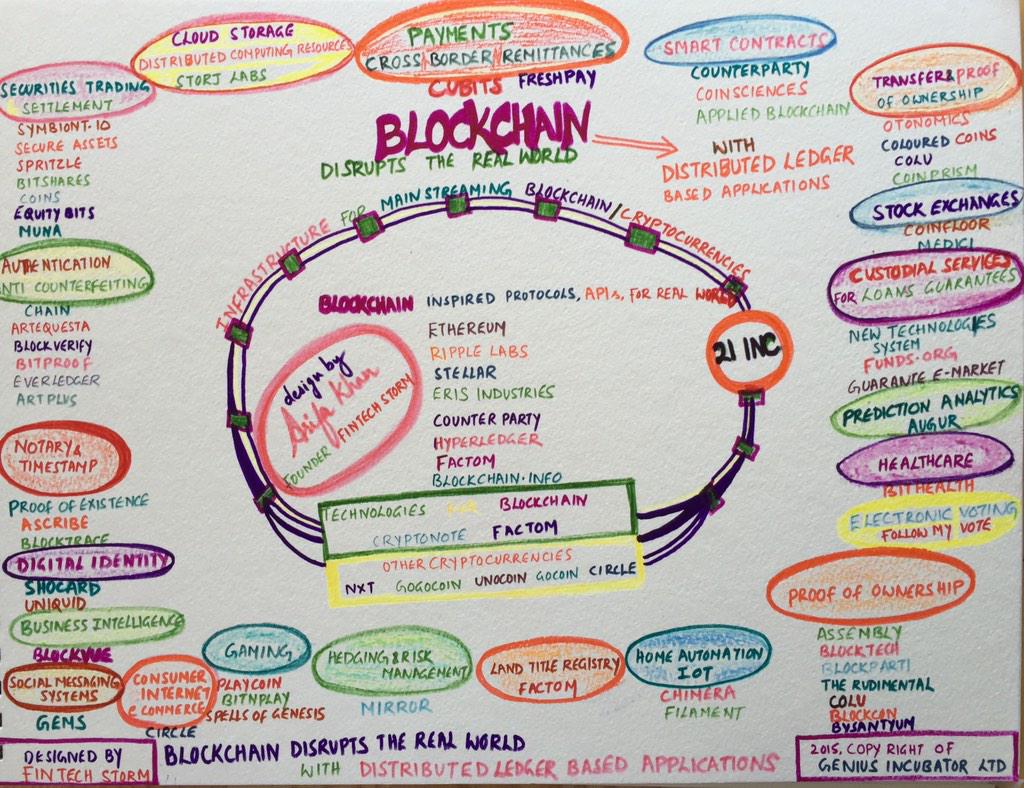 CLOUD STORAGE
DISTRIBUTED COMPUTING RESOURCES
STORJ LABS
PAYMENTS
CROSS BORDER REMITTANCES
CUBITS FRESHPAY
SMART CONTRACTS
COUNTERPARTY
COINSCIENCES
APPLIED BLOCKCHAIN
TRANSFER & PROOF
OF OWNERSHIP
OTONOMICS
COLOURED COINS
COLU
COINPRISM
SECURITIES TRADING
SETTLEMENT
SYMBIONT.IO
SECURE ASSETS
SPRITZLE
BITSHARES
COINS
EQUITY BITS
MUNA
BLOCKCHAIN
DISRUPTS THE REAL WORLD
WITH
DISTRIBUTED LEDGER
BASED APPLICATIONS
STOCK EXCHANGES
COINFLOOR
MEDICI
INFRASTRUCTURE FOR MAINSTREAMING BLOCKCHAIN/CRYPTOCURRENCIES
AUTHENTICATION
ANTI COUNTERFEITING
CHAIN
ARTEQUESTA
BLOCKVERIFY
BITPROOF
EVERLEDGER
ARTPLUS
CUSTODIAL SERVICES
FOR LOANS GUARANTEES
NEW TECHNOLOGIES
SYSTEM
FUNDS.ORG
GUARANTE E-MARKET
BLOCKCHAIN INSPIRED PROTOCOLS, APIs, FOR REAL WORLD
ETHEREUM
RIPPLE LABS
STELLAR
ERIS INDUSTRIES
COUNTER PARTY
HYPERLEDGER
FACTOM
BLOCKCHAIN.INFO
design by
Arifa Khan
FOUNDER FINTECH STORM
21 INC
PREDICTION ANALYTICS
AUGUR
HEALTHCARE
BITHEALTH
ELECTRONIC VOTING
FOLLOW MY VOTE
NOTARY &
TIMESTAMP
PROOF OF EXISTENCE
ASCRIBE
BLOCKTRACE
TECHNOLOGIES FOR BLOCKCHAIN
CRYPTONOTE FACTOM
OTHER CRYPTOCURRENCIES
NXT GOGOCOIN UNOCOIN GOCOIN CIRCLE
DIGITAL IDENTITY
SHOCARD
UNIQUID
BUSINESS INTELLIGENCE
PROOF OF OWNERSHIP
ASSEMBLY
BLOCKTECH
BLOCKPARTI
THE RUDIMENTAL
COLU
BLOCKCON
BYSANTYUM
SOCIAL MESSAGING
SYSTEMS
GEMS
CONSUMER
INTERNET
e COMMERCE
CIRCLE
GAMING
PLAYCOIN
BITNPLAY
SPELLS OF GENESIS
HEDGING & RISK
MANAGEMENT
MIRROR
LAND TITLE REGISTRY
FACTOM
HOME AUTOMATION
IOT
CHIMERA
FILAMENT
DESIGNED BY
FINTECH STORM
BLOCKCHAIN DISRUPTS THE REAL WORLD
WITH DISTRIBUTED LEDGER BASED APPLICATIONS
2015, COPY RIGHT OF
GENIUS INCUBATOR LTD